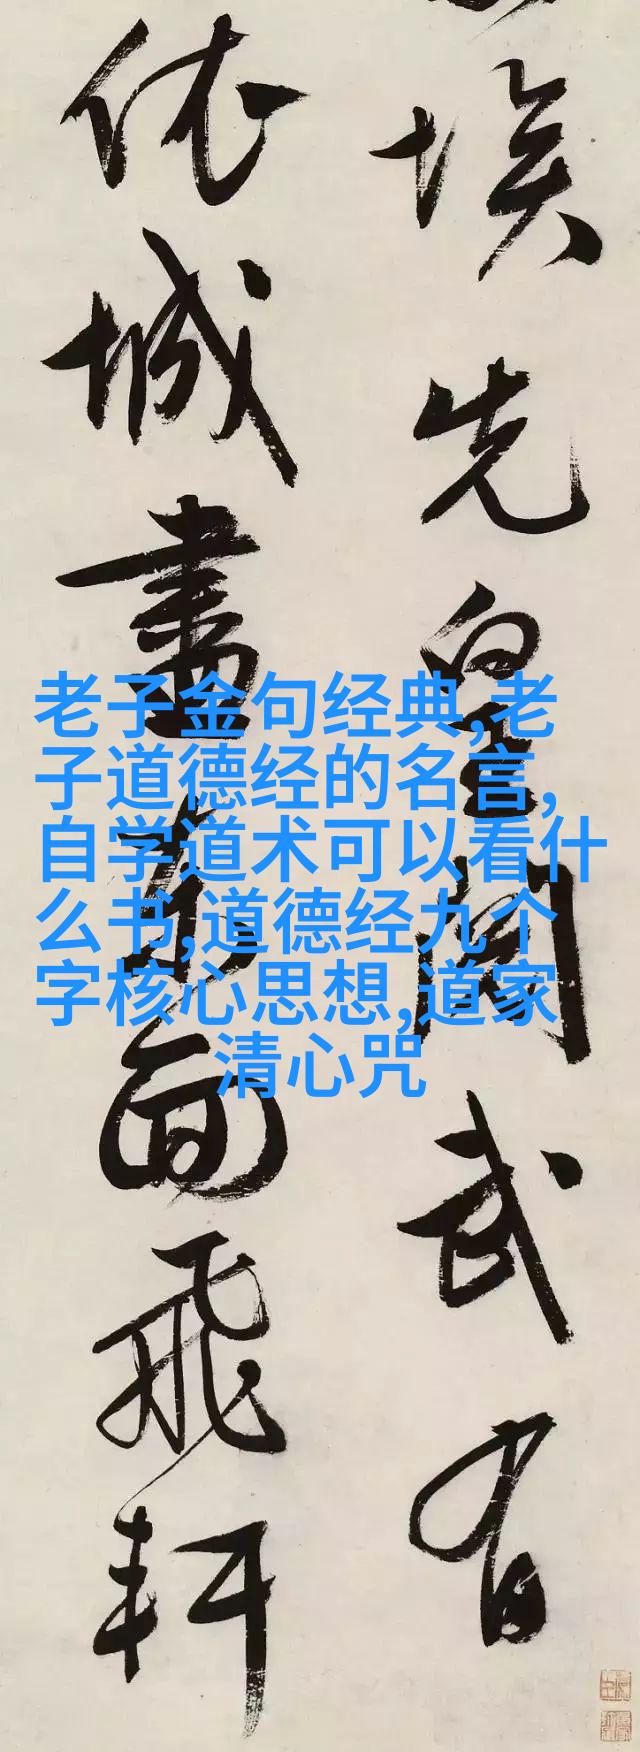 埃先皇閱武有
依城盡東面飛軒
老子金句经典,老
子道德经的名言,
自学道术可以看什
么书,道德经九个
字核心思想,道家
清心咒